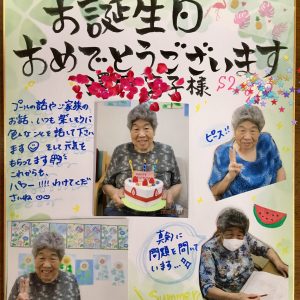 お誕生日
おめでとうございます
子様
プールの話やご家族の
お話、いつも楽しそうに
色んなことを話して下さい
ます
そして元気を
もらってます
これからも、
パワー!!!! わけてくだ
さいね
ピース!!
真剣に
問題を聞いて
います…
Summer